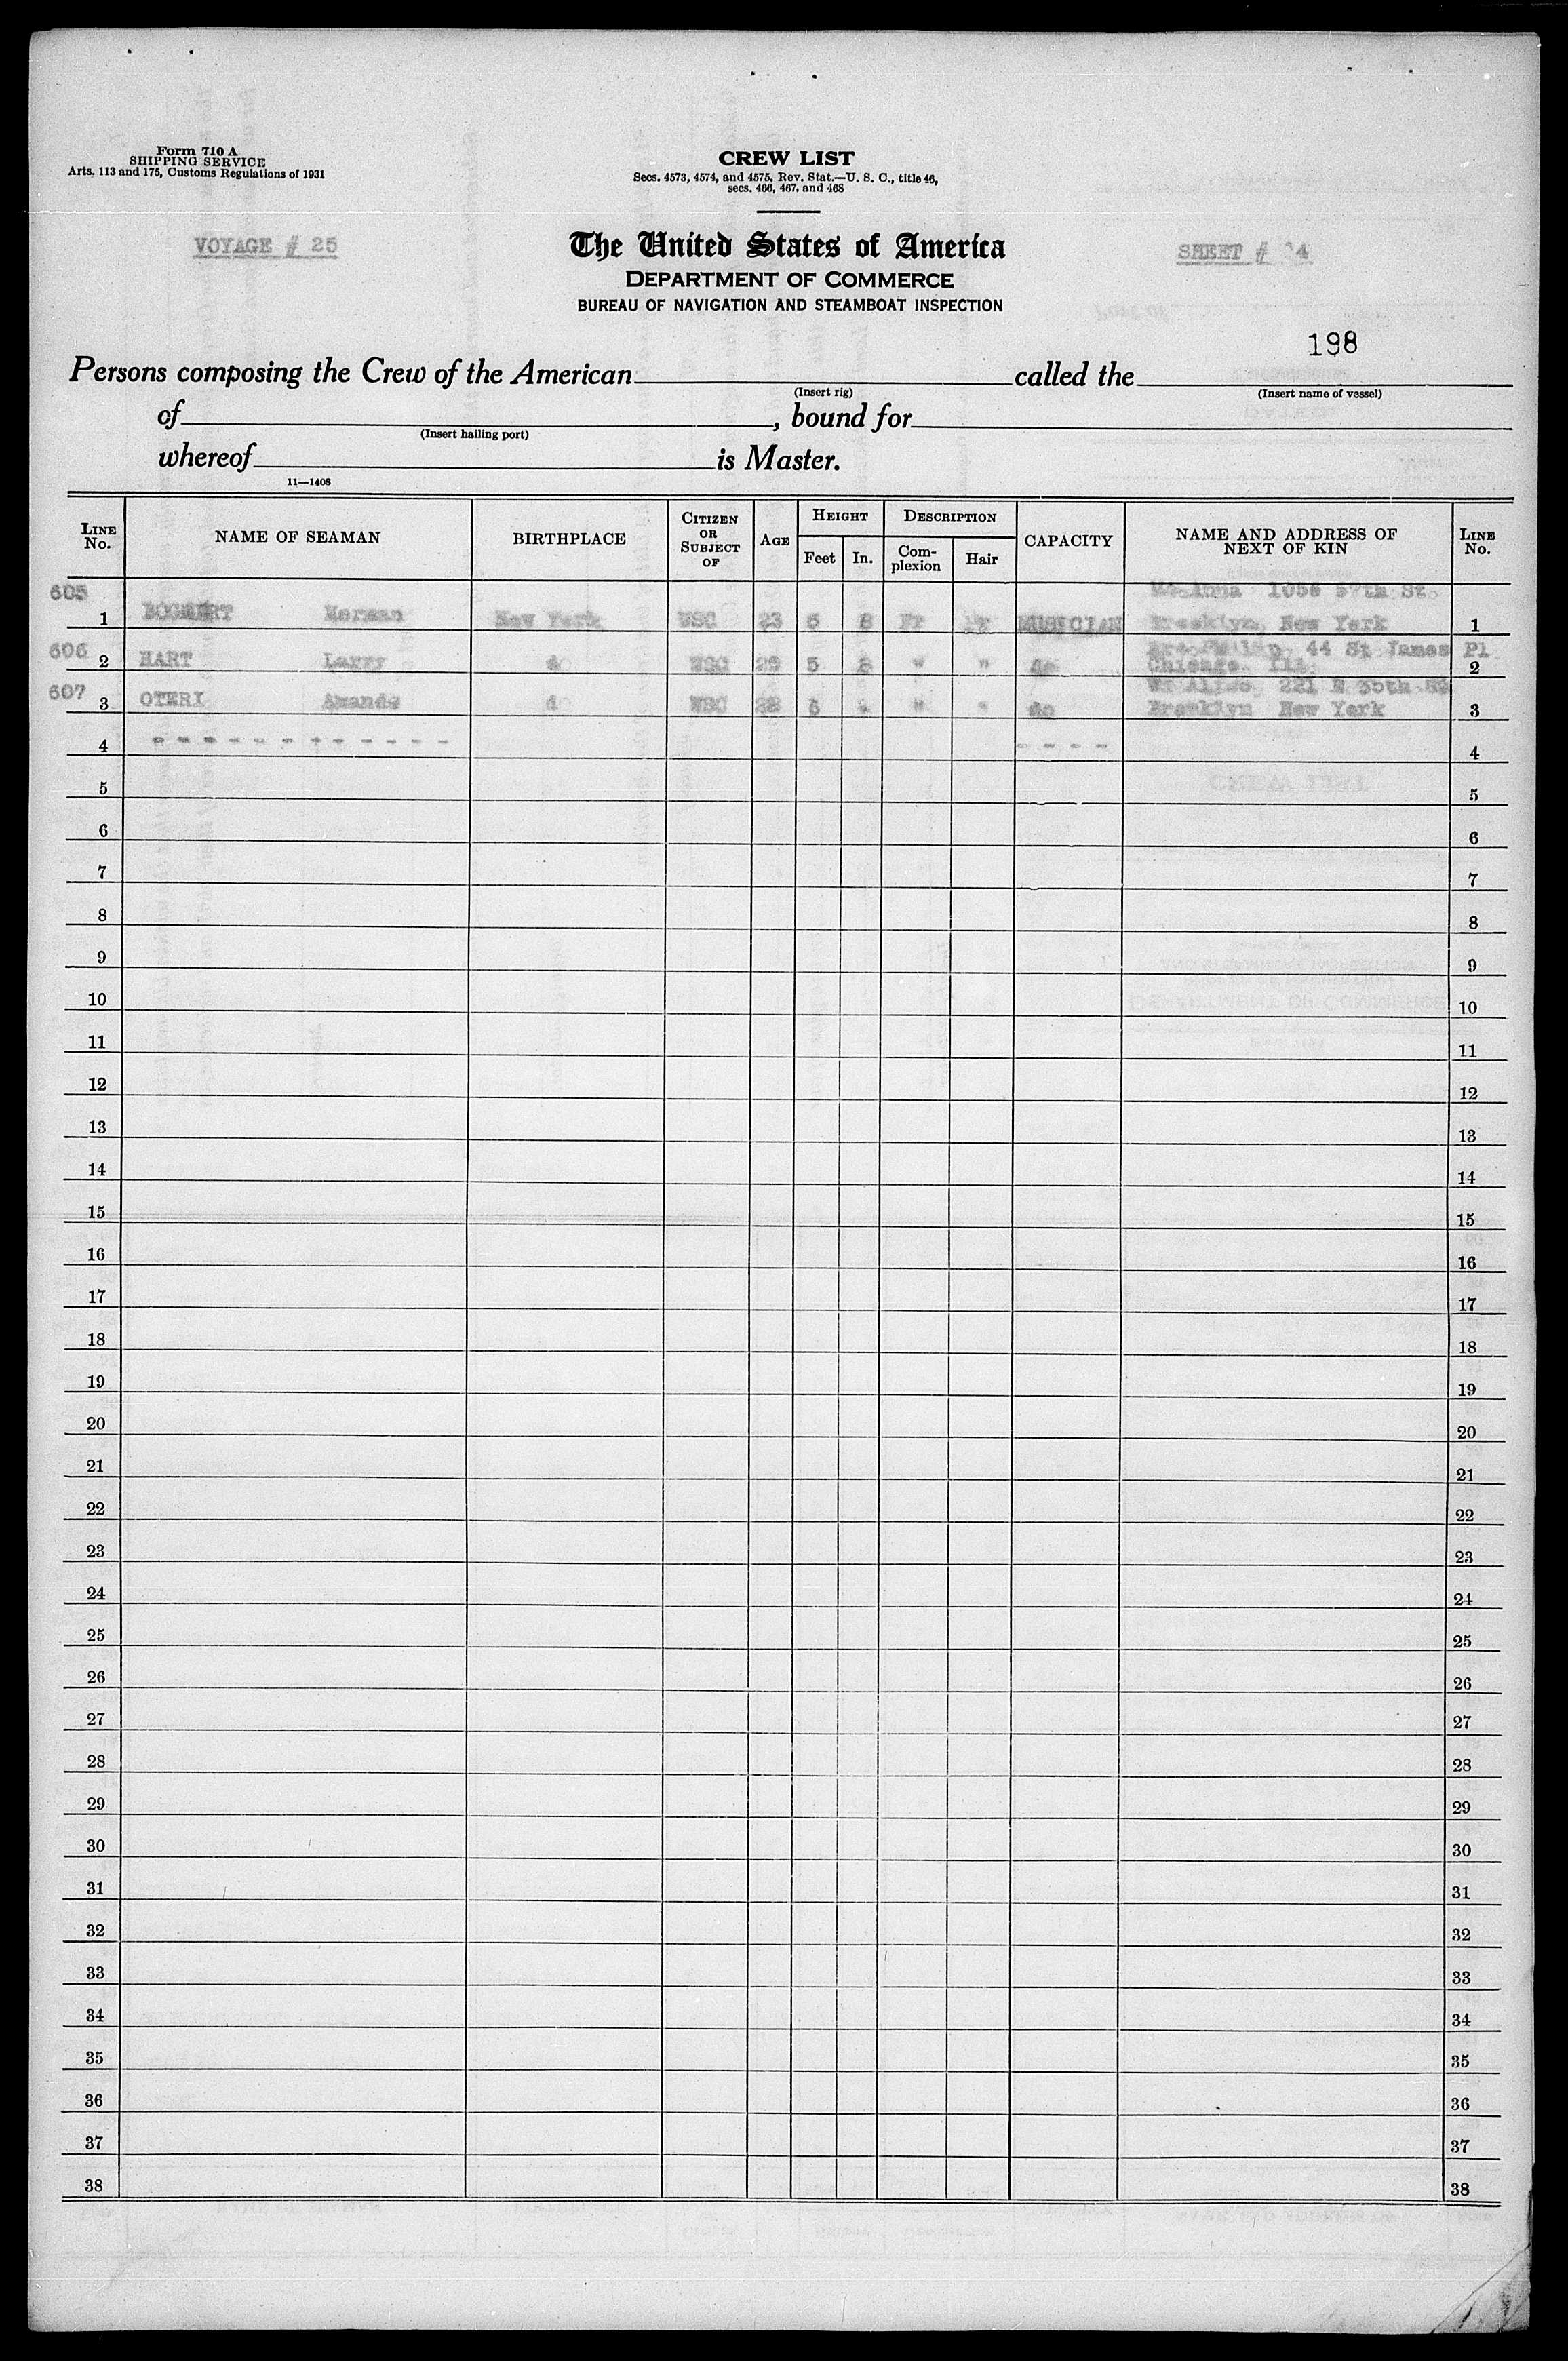 Form 710 A
SHIPPING SERVICE
Arts. 113 and 175, Customs Regulations of 1931
CREW LIST
Secs. 4573, 4574, and 4575, Rev. Stat.—U. S. C., title 46,
secs. 466, 467, and 468
VOYAGE # 25
The United States of America
SHEET # 4
DEPARTMENT OF COMMERCE
BUREAU OF NAVIGATION AND STEAMBOAT INSPECTION
198
Persons composing the Crew of the American called the
(Insert rig) (Insert name of vessel)
of , bound for
(Insert hailing port)
whereof is Master.
11—1408
LINE No. NAME OF SEAMAN BIRTHPLACE CITIZEN OR SUBJECT OF AGE HEIGHT Feet In. DESCRIPTION Complexion Hair CAPACITY NAME AND ADDRESS OF NEXT OF KIN LINE No.
605 Anna 1056 57th St.
1 Herman New York USC 23 5 8 MUSICIAN Brooklyn, New York 1
606 44 St James Pl
2 HART Larry do USC 29 5 8 " " do Chicago Ill. 2
607 221 E 35th St
3 OTERI USC 28 5 " " do Brooklyn New York 3
4 - - - - - - - - - - - - - - - - 4
5 5
6 6
7 7
8 8
9 9
10 10
11 11
12 12
13 13
14 14
15 15
16 16
17 17
18 18
19 19
20 20
21 21
22 22
23 23
24 24
25 25
26 26
27 27
28 28
29 29
30 30
31 31
32 32
33 33
34 34
35 35
36 36
37 37
38 38